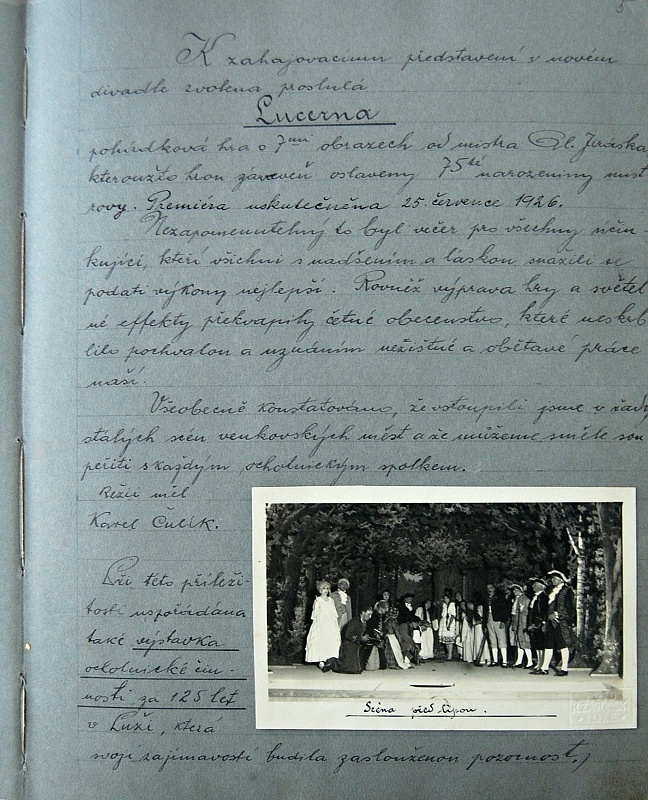 5
K zahajovacímu představení v novém
divadle zvolena proslulá
Lucerna
pohádková hra o 7mi obrazech od mistra Al. Jiráska
kteroužto hrou zároveň oslaveny 75té narozeniny mist
rovy. Premiéra uskutečněna 25. července 1926.
Nezapomenutelný to byl večer pro všechny účin-
kující, kteří všichni s nadšením a láskou snažili se
podati výkony nejlepší. Rovněž výprava hry a světel
né effekty překvapily četné obecenstvo, které neskrb
lilo pochvalou a uznáním nezištné a obětavé práce
naší.
Všeobecně konstatováno, že vstoupili jsme v řady
stálých scén venkovských měst a že můžeme směle sou
peřiti s každým ochotnickým spolkem.
Režii měl
Karel Čulík.
Při této příleži-
tosti uspořádána
také výstavka
ochotnické čin-
nosti za 125 let
v Luži, která
svojí zajímavostí budila zaslouženou pozornost.
Scéna před lípou.